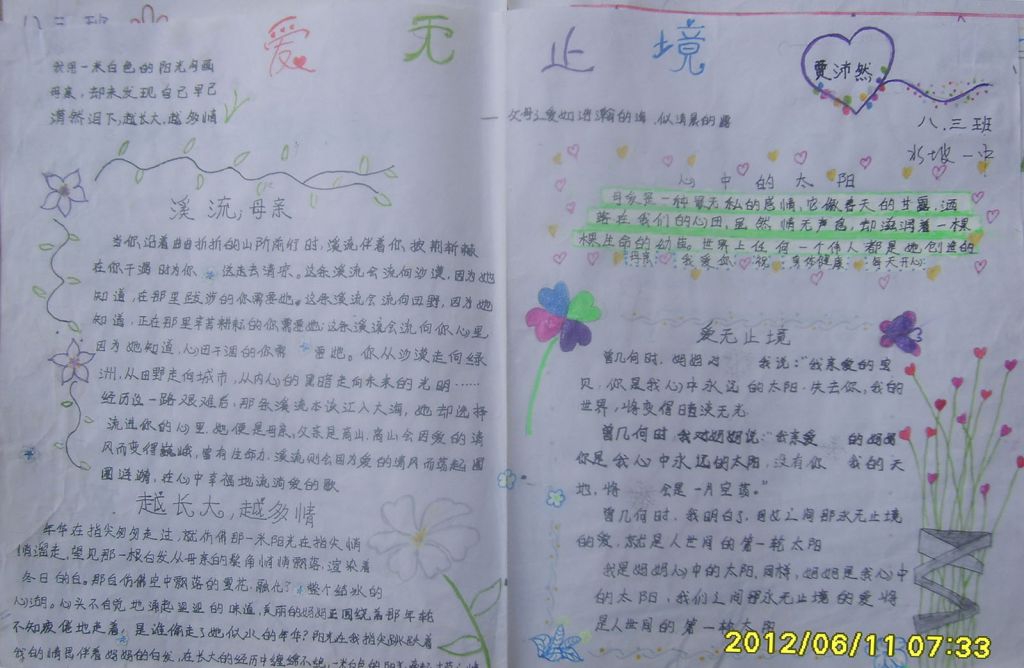 爱无止境
贾沛然
八.三班
水坡一中
我用一米白色的阳光勾画
母亲,却未发现自己早已
潸然泪下,越长大,越多情
父母之爱如浩瀚的海,似清晨的露
溪流,母亲
当你沿着曲曲折折的山阶前行时,溪流伴着你披荆斩棘
在你干渴时为你送去清凉。这条溪流会流向沙漠,因为她
知道,在那里跋涉的你需要她。这条溪流会流向田野,因为她
知道,正在那里辛苦耕耘的你需要她;这条溪流会流向你心里
因为她知道,心田干涸的你需要她。你从沙漠走向绿
洲,从田野走向城市,从内心的黑暗走向未来的光明……
经历这一路艰难后,那条溪流本该汇入大海,她却选择
流进你的心里,她便是母亲。父亲是高山,高山会因爱的清
风而变得巍峨,富有生命力,溪流则会因为爱的清风而荡起圈
圈涟漪,在心中幸福地流淌爱的歌
越长大,越多情
年华在指尖匆匆走过,就仿佛那一米阳光在指尖悄
悄溜走。望见那一根白发从母亲的鬓角悄悄飘落,渲染着
冬日的白。那白仿佛空中飘落的雪花,融化了整个结冰的
心湖。心头不自觉地涌起
不知疲倦地走着。是谁偷走了她似水的年华?阳光在我指尖跳跃着
我的情思伴着妈妈的白发,在长大的经历中缠绵不绝,一米白色的阳光
心中的太阳
母爱是一种最无私的感情,它像春天的甘露,洒
落在我们的心田,虽然悄无声息,却滋润着一棵
棵生命的幼苗。世界上任何一个伟人都是她创造的
母亲:我爱你 祝:身体健康 每天开心
爱无止境
曾几何时,妈妈对我说:“我亲爱的宝
贝,你是我心中永远的太阳,失去你,我的
世界,将变得暗淡无光
曾几何时,我对妈妈说:“我亲爱的妈妈
你是我心中永远的太阳,没有你我的天
地,将会是一片空荡。”
曾几何时,我明白了,母女之间那永无止境
的爱,就是人世间的第一轮太阳
我是妈妈心中的太阳,同样,妈妈是我心中
的太阳,我们之间那永无止境的爱将
是人世间的第一轮太阳
2012/06/11 07:33